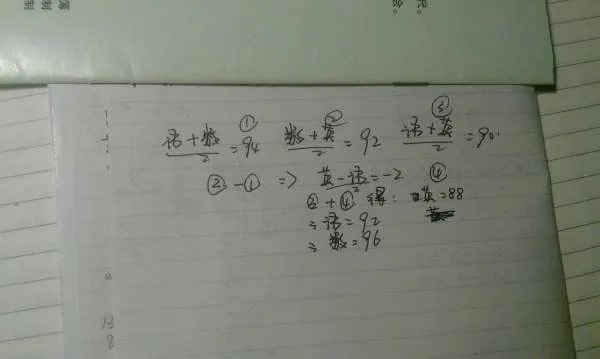 ① ② ③
语+数/2=94 数+英/2=92 语+英/2=90.
②-① => 英-语/2=-2 ④
②+④ 得: 英=88
=语=92
=数=96
13
8